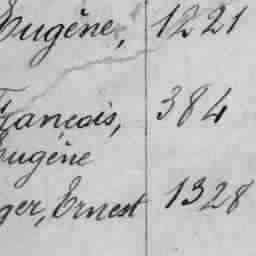 Eugène, 1221
François, 384
Eugène
ger, Ernest 1328